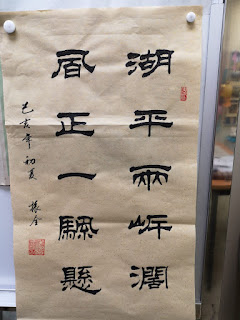 湖平兩岸闊
風正一颿懸
己亥年初夏 振全